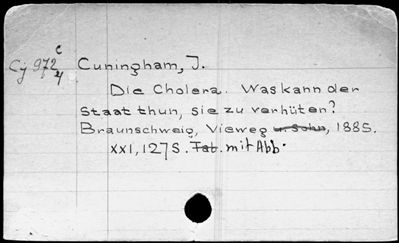 Cj 972 c/4 Cuningham, J.
Die Cholera. Was kann der
Staat thun, sie zu verhüten?
Braunschweig, Vieweg u. Sohn, 1885.
XXI, 127 S. Tab. mit Abb.